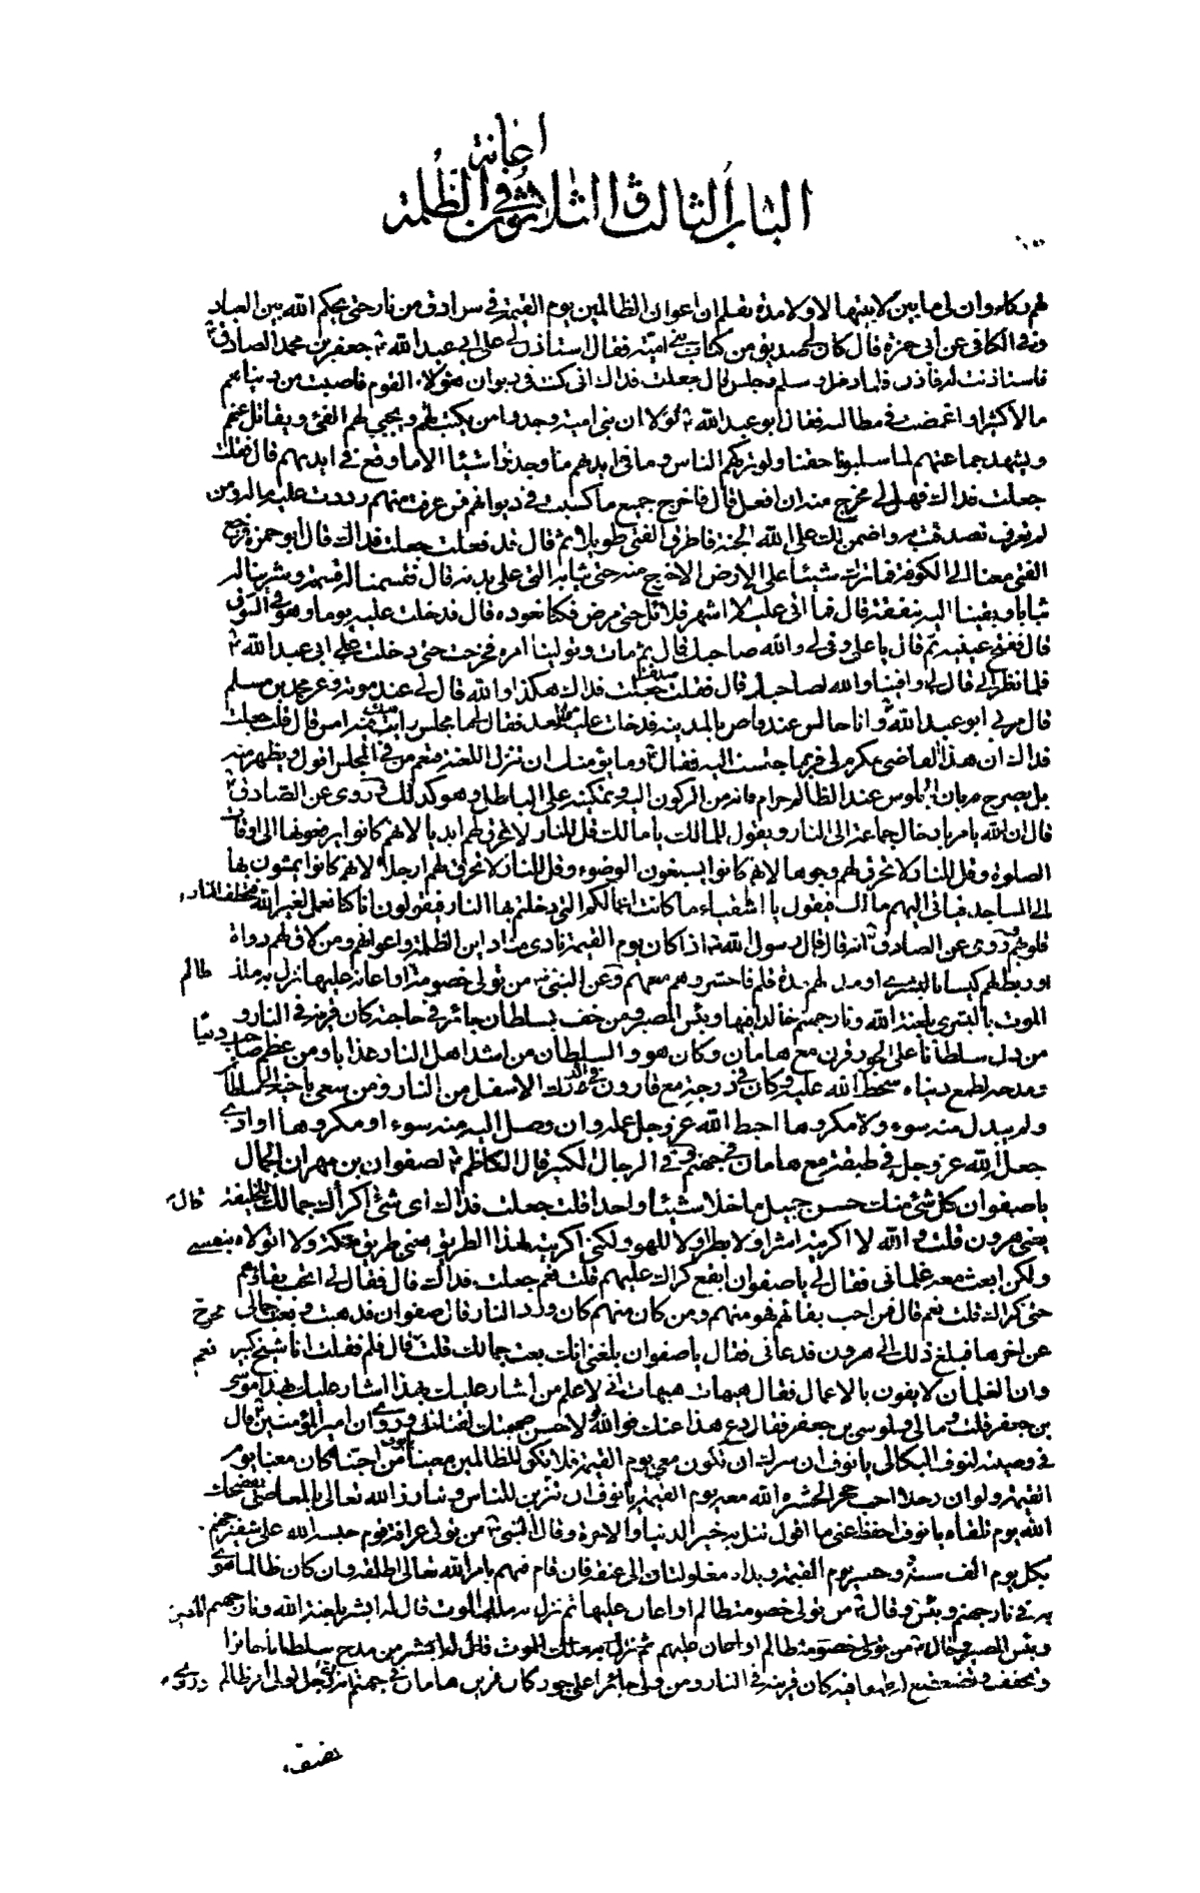 الباب الثالث والثلاثون في اعانة الظلمة
لهم وكاء وان لي ما بين لابتيها لا ولا مدة بقلم ان اعوان الظالمين يوم القيمة في سرادق من نار حتى يحكم الله بين العباد
وفي الكافي عن أبي حمزة قال كان لي صديق من كتاب بني امية فقال استأذن لي على ابي عبد الله ع جعفر بن محمد الصادق ع
فاستاذنت له فأذن فلما دخل وسلم وجلس قال جعلت فداك اني كنت في ديوان هؤلاء القوم فاصبت من دنياهم
مالا كثيرا واغمضت في مطالبه فقال ابو عبد الله ع لولا ان بني امية وجدوا من يكتب لهم ويجبي لهم الفئ ويقاتل عنهم
ويشهد جماعتهم لما سلبونا حقنا ولو تركهم الناس وما في ايديهم ما وجدوا شيئا الا ما وقع في ايديهم قال فقلت
جعلت فداك فهل لي مخرج منه ان افعل قال فاخرج جميع ما كسبت في ديوانهم فمن عرفت منهم رددت عليه ماله ومن
لم تعرف تصدقت به واضمن لك على الله الجنة فاطرق الفتى طويلا ثم قال قد فعلت جعلت فداك قال ابو حمزة فرجع
الفتى معنا الى الكوفة فما ترك شيئا على الارض الا خرج منه حتى ثيابه التي على بدنه قال فقسمنا له قسمة وشرينا له
ثيابا وبعثنا اليه بنفقة قال فما اتى عليه الا اشهر قلائل حتى مرض فكنا نعوده قال فدخلت عليه يوما وهو في السوق
قال ففتح عينيه ثم قال يا علي وفى لي والله صاحبك قال ثم مات وتولينا امره فخرجت حتى دخلت على ابي عبد الله ع
فلما نظر الي قال وفينا والله لصاحبك قال فقلت صدقت جعلت فداك هكذا والله قال لي عند موته وعن محمد بن مسلم
قال مر بي ابو عبد الله ع وانا جالس عند قاض بالمدينة فدخلت عليه من الغد فقال لي ما مجلس رايتك فيه امس قال قلت جعلت
فداك ان هذا القاضي مكرم لي فربما جلست اليه فقال ع وما يؤمنك ان تنزل اللعنة فتعم من في المجلس اقول ويظهر منه
بل يصرح به بان الجلوس عند الظالم حرام فانه من الركون اليه وتمكينه على الباطل وهو كذلك وروى عن الصادق ع
قال ان الله يامر بادخال جماعة الى النار ويقول لمالك يا مالك قل للنار لا تحرق لهم ايديا لانهم كانوا يرفعونها الى اوقات
الصلوة وقل للنار لا تحرق لهم وجوها لانهم كانوا يسبغون الوضوء وقل للنار لا تحرق لهم ارجلا لانهم كانوا يمشون بها
الى المساجد فياتي اليهم مالك فيقول يا اشقياء ما كانت اعمالكم التي دخلتم بها النار فيقولون انا كنا نعمل لغير الله
وروى عن الصادق ع انه قال قال رسول الله ص اذا كان يوم القيمة نادى مناد اين الظلمة واعوانهم ومن لاق لهم دواة
او ربط لهم كيسا او مد لهم مدة قلم فاحشروهم معهم وعن النبي ص من تولى خصومة ظالم او اعانه عليها نزل به ملك
الموت بالبشرى بلعنة الله ونار جهنم خالدا فيها وبئس المصير ومن خف بسلطان جائر في حاجة كان قرينه في النار و
من دل سلطانا على الجور قرن مع هامان وكان هو والسلطان من اشد اهل النار عذابا ومن عظم صاحب دنيا
ومدحه لطمع دنياه سخط الله عليه وكان في درجته مع قارون في الدرك الاسفل من النار ومن سعى باخيه الى سلطان
ولم يبدل منه سوء ولا مكروها احبط الله عز وجل عمله وان وصل اليه منه سوء او مكروها او اذى
جعل الله عز وجل في طبقة مع هامان في جهنم وفي الرجال الكبير قال الكاظم ع لصفوان بن مهران الجمال
يا صفوان كل شئ منك حسن جميل ما خلا شيئا واحدا قلت جعلت فداك اي شئ قال اكراك جمالك للخليفة
يعني هرون قلت والله لا اكريته اشرا ولا بطرا ولا للهو ولكني اكريته لهذا الطريق يعني طريق مكة ولا اتولاه بنفسي
ولكن ابعث معه غلماني فقال لي يا صفوان ايقع كراك عليهم قلت نعم جعلت فداك قال فقال لي اتحب بقاؤهم
حتى يخرج كراك قلت نعم قال فمن احب بقائهم فهو منهم ومن كان منهم كان ورد النار قال صفوان فذهبت وبعت جمالي
عن اخرها فبلغ ذلك الى هرون فدعاني فقال يا صفوان بلغني انك بعت جمالك قلت نعم قال فلم فقلت انا شيخ كبير
وان الغلمان لا يفون بالاعمال فقال هيهات هيهات اني لاعلم من اشار عليك بهذا اشار عليك بهذا موسى
بن جعفر قلت ما لي ولموسى بن جعفر فقال دع هذا عنك فوالله لولا حسن صحبتك لقتلتك وروى ان امير المؤمنين ع قال
في وصيته لنوف البكالي يا نوف ان سرك ان تكون معي يوم القيمة فلا تكن للظالمين معينا يا نوف من احبنا كان معنا يوم
القيمة ولو ان رجلا احب حجرا لحشره الله معه يوم القيمة يا نوف اياك ان تتزين للناس وتبارز الله تعالى بالمعاصي فيفضحك
الله يوم تلقاه يا نوف احفظ عني ما اقول تنل به خير الدنيا والاخرة وقال النبي ص من تولى عرافة قوم حبسه الله على شفير جهنم
بكل يوم الف سنة وحشر يوم القيمة ويداه مغلولتان الى عنقه فان قام فيهم بامر الله تعالى اطلقه وان كان ظالما هوى
به في نار جهنم وبئس المصير وقال ص من تولى خصومة ظالم او اعان عليها ثم نزل به ملك الموت قال له ابشر بلعنة الله ونار جهنم
وبئس المصير وقال ص من مدح سلطانا جائرا
وتخفف وتضعضع له طمعا فيه كان قرينه في النار ومن ولي جائرا على جور كان قرين هامان في جهنم
تضيق